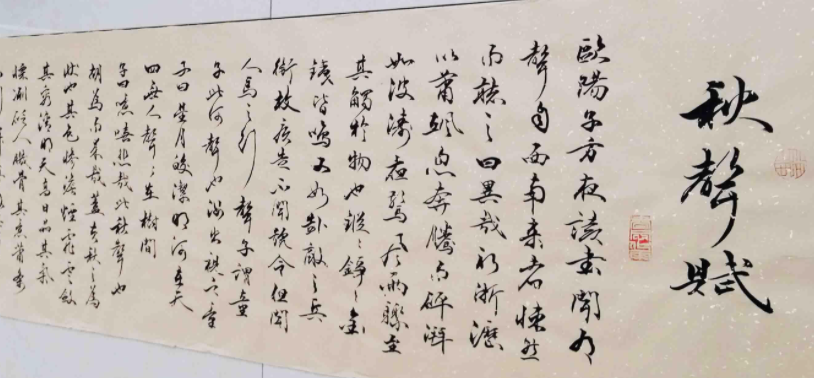 秋聲賦
歐陽子方夜讀書聞有
聲自西南來者悚然
而聽之曰異哉初淅瀝
以蕭颯忽奔騰而砰湃
如波濤夜驚風雨驟至
其觸於物也鏦〻錚〻金
鐵皆鳴又如赴敵之兵
銜枚疾走不聞號令但聞
人馬之行聲予謂童
子此何聲也汝出視之童
子曰星月皎潔明河在天
四無人聲〻在樹間
予曰噫嘻悲哉此秋聲也
胡為而來哉蓋夫秋之為
狀也其色慘淡煙霏雲斂
其容清明天高日晶其氣
慄冽砭人肌骨其意蕭條